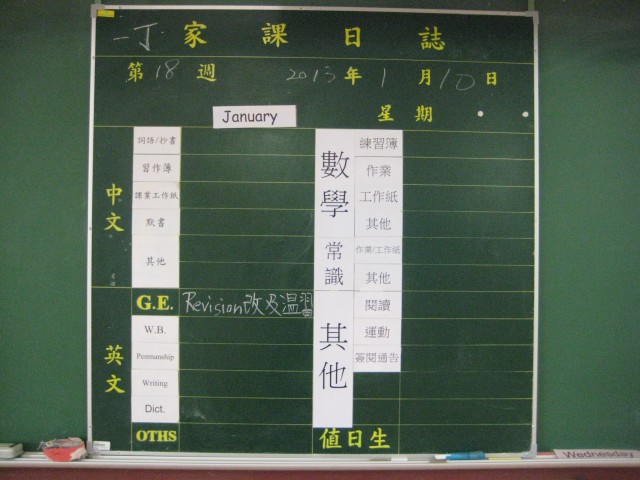 一丁 家課日誌
第18週 2013年1月10日
January 星期
中文
詞語/抄書
習作簿
課業工作紙
默書
其他
英文
G.E. Revision改及温習
W.B.
Penmanship
Writing
Dict.
OTHS
數學
練習簿
作業
工作紙
其他
常識
作業/工作紙
其他
其他
閱讀
運動
簽閱通告
值日生
Wednesday